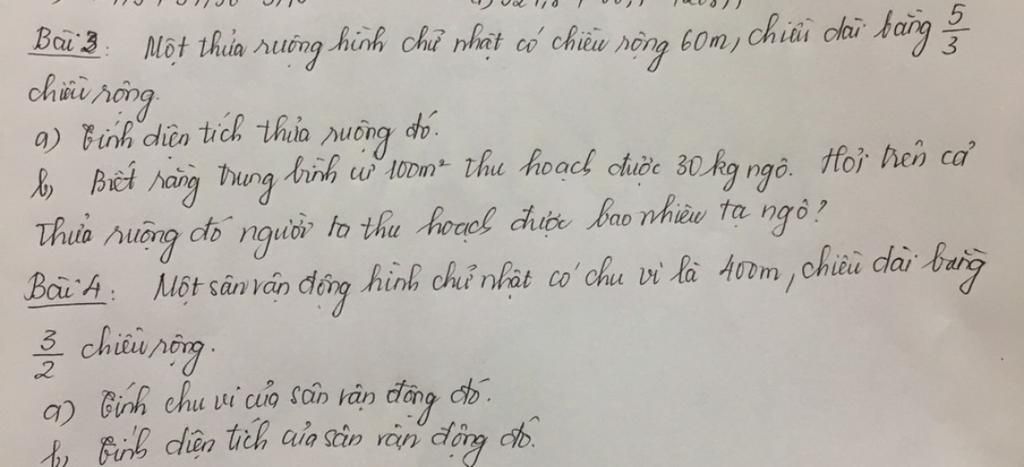 Bài 3: Một thửa ruộng hình chữ nhật có chiều rộng 60m, chiều dài bằng 5/3
chiều rộng.
a) Tính diện tích thửa ruộng đó.
b, Biết rằng trung bình cứ 100m² thu hoạch được 30 kg ngô. Hỏi trên cả
thửa ruộng đó người ta thu hoạch được bao nhiêu tạ ngô?
Bài 4: Một sân vận động hình chữ nhật có chu vi là 400m, chiều dài bằng
3/2 chiều rộng.
a) Tính chu vi của sân vận động đó.
b, Tính diện tích của sân vận động đó.